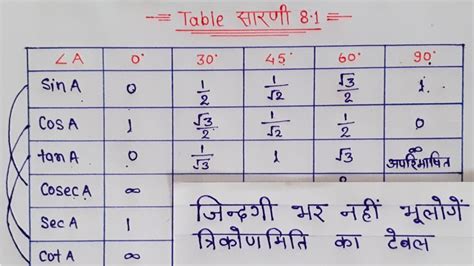 Table सारणी 8.1
∠A 0° 30° 45° 60° 90°
Sin A 0 1/2 1/√2 √3/2 1
Cos A 1 √3/2 1/√2 1/2 0
tan A 0 1/√3 1 √3 ∞ अपरिभाषित
Cosec A ∞
Sec A 1
Cot A ∞
जिन्दगी भर नहीं भूलोगें
त्रिकोणमिति का टेबल